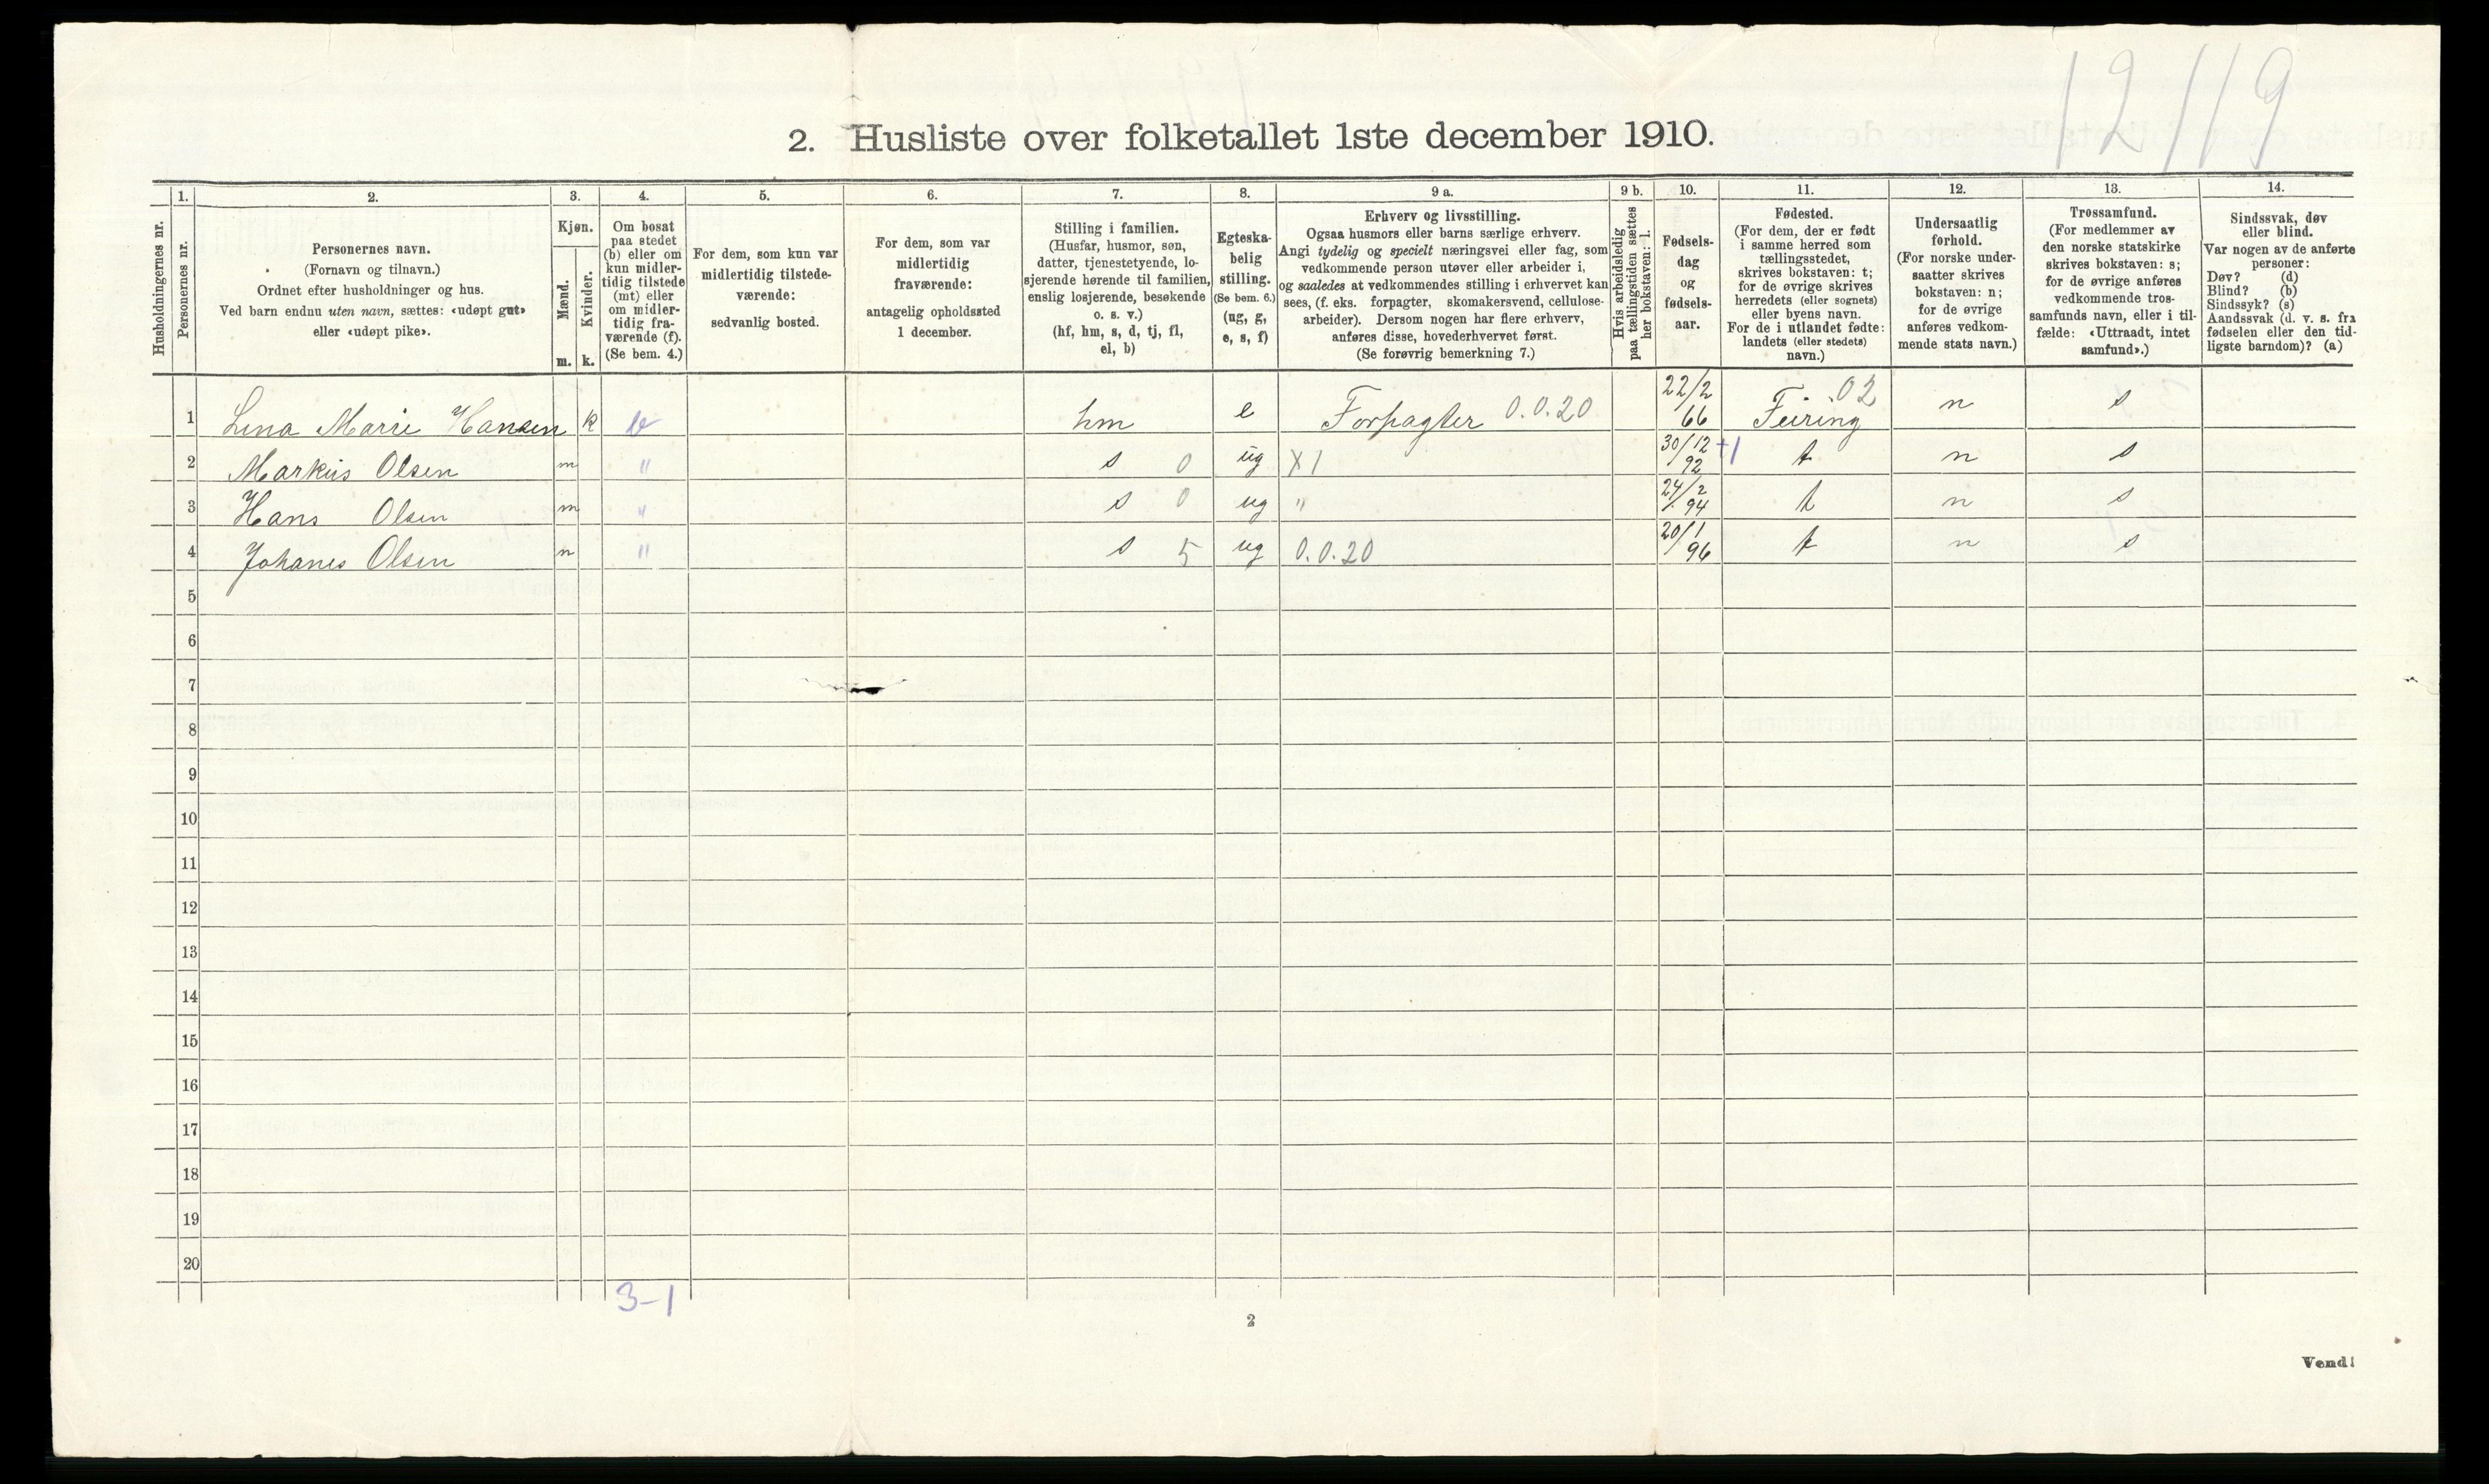 12 119
2. Husliste over folketallet 1ste december 1910.
Husholdningernes nr.
1.
Personernes nr.
2.
Personernes navn.
(Fornavn og tilnavn.)
Ordnet efter husholdninger og hus.
Ved barn endnu uten navn, sættes: «udøpt gut»
eller «udøpt pike».
3.
Kjøn.
Mænd.
m.
Kvinder.
k.
4.
Om bosat
paa stedet
(b) eller om
kun midler-
tidig tilstede
(mt) eller
om midler-
tidig fra-
værende (f).
(Se bem. 4.)
5.
For dem, som kun var
midlertidig tilstede-
værende:
sedvanlig bosted.
6.
For dem, som var
midlertidig
fraværende:
antagelig opholdssted
1 december.
7.
Stilling i familien.
(Husfar, husmor, søn,
datter, tjenestetyende, lo-
sjerende hørende til familien,
enslig losjerende, besøkende
o. s. v.)
(hf, hm, s, d, tj, fl,
el, b)
8.
Egteska-
belig
stilling.
(Se bem. 6.)
(ug, g,
e, s, f)
9 a.
Erhverv og livsstilling.
Ogsaa husmors eller barns særlige erhverv.
Angi tydelig og specielt næringsvei eller fag, som
vedkommende person utøver eller arbeider i,
og saaledes at vedkommendes stilling i erhvervet kan
sees, (f. eks. forpagter, skomakersvend, cellulose-
arbeider). Dersom nogen har flere erhverv,
anføres disse, hovederhvervet først.
(Se forøvrig bemerkning 7.)
9 b.
Hvis arbeidsledig
paa tællingstiden sættes
her bokstaven: l.
10.
Fødsels-
dag
og
fødsels-
aar.
11.
Fødested.
(For dem, der er født
i samme herred som
tællingsstedet,
skrives bokstaven: t;
for de øvrige skrives
herredets (eller sognets)
eller byens navn.
For de i utlandet fødte:
landets (eller stedets)
navn.)
12.
Undersaatlig
forhold.
(For norske under-
saatter skrives
bokstaven: n;
for de øvrige
anføres vedkom-
mende stats navn.)
13.
Trossamfund.
(For medlemmer av
den norske statskirke
skrives bokstaven: s;
for de øvrige anføres
vedkommende tros-
samfunds navn, eller i til-
fælde: «Uttraadt, intet
samfund».)
14.
Sindssvak, døv
eller blind.
Var nogen av de anførte
personer:
Døv? (d)
Blind? (b)
Sindssyk? (s)
Aandssvak (d. v. s. fra
fødselen eller den tid-
ligste barndom)? (a)
1 Lina Marie Hansen k b hm e Forpagter 0.0.20 22/2 66 02 Feiring n s
2 Markus Olsen m " s 0 ug X1 30/12 92 +1 t n s
3 Hans Olsen m " s 0 ug " 24/2 94 t n s
4 Johanes Olsen m " s 5 ug 0.0.20 20/1 96 t n s
5
6
7
8
9
10
11
12
13
14
15
16
17
18
19
20
3-1
2
Vend!